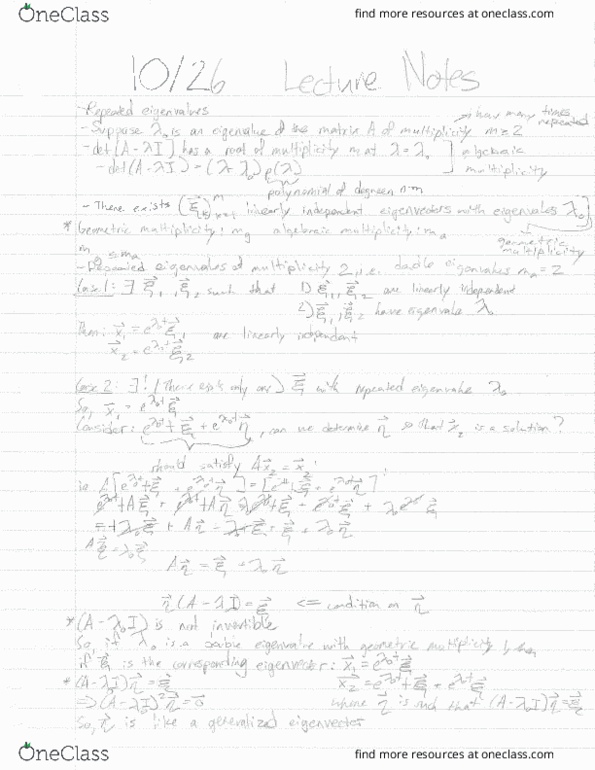 OneClass
find more resources at oneclass.com
10/26 Lecture Notes
- Repeated eigenvalues
→ how many times repeated
- Suppose λ₀ is an eigenvalue of the matrix A of multiplicity m≥2
- det(A-λI) has a root of multiplicity m at λ=λ₀ ] algebraic
- det(A-λI) = (λ-λ₀)ᵐp(λ) multiplicity
polynomial of degree n-m
- There exists linearly independent eigenvectors with eigenvalues λ₀
* Geometric multiplicity: m_g algebraic multiplicity: m_a
geometric multiplicity
m_g ≤ m_a
- Repeated eigenvalues of multiplicity 2, i.e. double eigenvalues m_a = 2
Case 1: ∃ ξ⃗₁, ξ⃗₂ such that 1) ξ⃗₁, ξ⃗₂ are linearly independent
2) ξ⃗₁, ξ⃗₂ have eigenvalue λ₀
Then: x⃗₁ = e^λ₀t ξ⃗₁ are linearly
x⃗₂ = e^λ₀t ξ⃗₂
Case 2: ∃! (There exists only one) ξ⃗ with repeated eigenvalue λ₀
So, x⃗₁ = e^λ₀t ξ⃗
Consider: e^λ₀t t ξ⃗ + e^λ₀t η⃗, can we determine η⃗ so that x⃗₂ is a solution?
should satisfy Ax⃗₂ = x⃗₂'
Aη⃗ = ξ⃗ + λ₀η⃗
η⃗(A-λI) = ξ⃗ <= condition on η⃗
* (A-λ₀I) is not invertible
So, if λ₀ is a double eigenvalue with geometric multiplicity
if ξ⃗ is the corresponding eigenvector: x⃗₁ = e^λ₀t ξ⃗
* (A-λ₀I)η⃗ = ξ⃗ x⃗₂ = e^λ₀t t ξ⃗ + e^λ₀t
⇒ (A-λ₀I)²η⃗ = 0⃗ where η⃗ is such that (A-λ₀I)η⃗ = ξ⃗
So, η⃗ is like a generalized eigenvector
OneClass
find more resources at oneclass.com